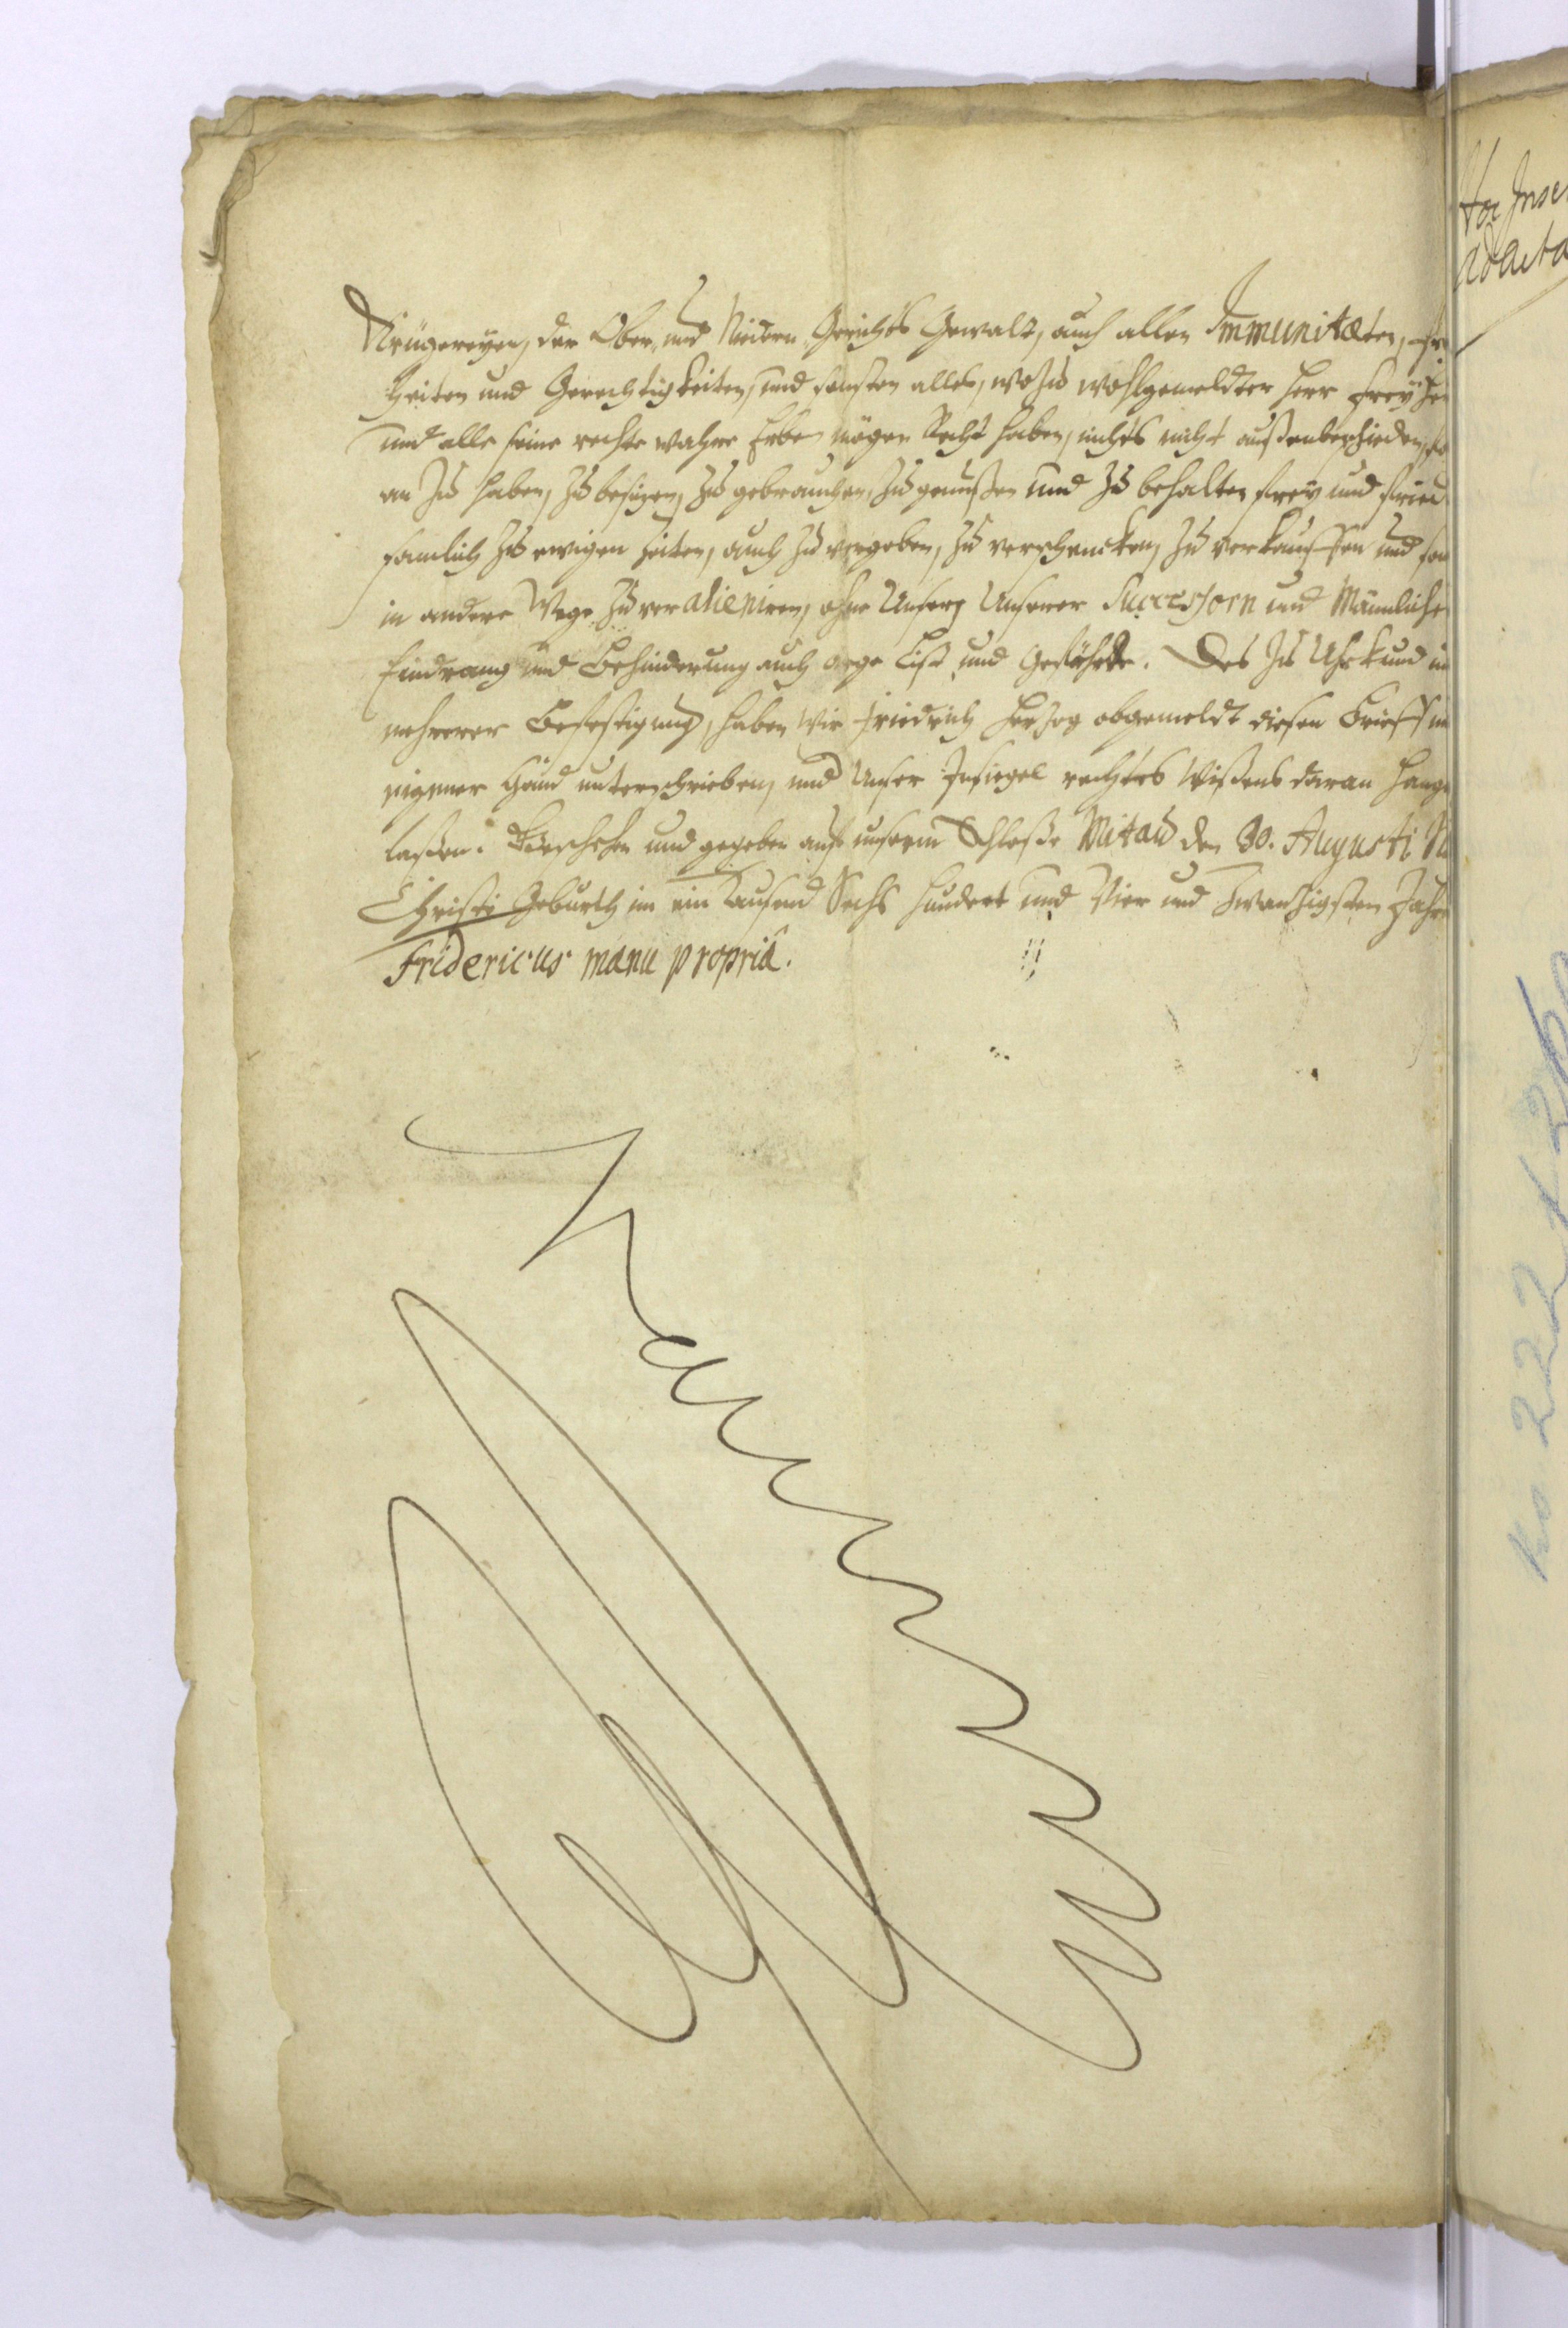 Krügereyen, der Ober- und Niedern Gerichts Gewalt, auch allen Immunitæten, Fre
heiten und Gerechtigkeiten, und sonsten alles, wozu wohlgemeldter Herr Frey Her
und alle seine rechte wahre Erben mögen Recht haben, nichts nicht außenbeschieden,
an zu haben, zu besizen, zu gebrauchen, zu genüßen und zu behalten frey und fried
samlich zu ewigen Zeiten, auch zu vergeben, zu verschencken, zu verkauffen und son
in andere Wege zu veralieniren, ohne Unserer Successorn und Männlichen
Eindrang und Behinderung auch arge List und Gefährde. Des zu Uhrkund in
mehrerer Befestigung, haben Wir Friedrich Herzog obgemeldt diesen Brieff mi
eigener Hand unterschrieben, und Unser Insiegel rechtes Wißens daran hange
laßen. Geschehen und gegeben auf unserm Schloße Mitau den 30. Augusti Na
Christi Geburth im ein Tausend Sechs Hundert und Vier und Zwanzigsten Jahre
Fridericus manu propriâ.
Hoc Inse
ad acta
222